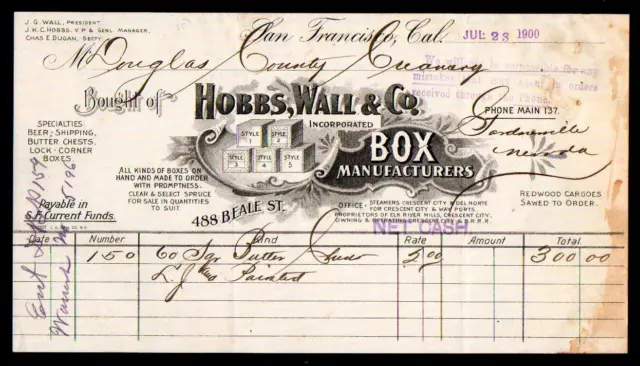 J. G. WALL, PRESIDENT
J. K. C. HOBBS, V. P. & GENL. MANAGER,
CHAS E. DUGAN, SECTY.
San Francisco, Cal. JUL 23 1900
M Douglas County Creamery
Bought of HOBBS, WALL & CO.
INCORPORATED
BOX MANUFACTURERS
PHONE MAIN 137.
Gardnerville
Nevada
STYLE 1
STYLE 2
STYLE 3
STYLE 4
STYLE 5
SPECIALTIES
BEER, SHIPPING,
BUTTER CHESTS,
LOCK-CORNER
BOXES.
ALL KINDS OF BOXES ON
HAND AND MADE TO ORDER
WITH PROMPTNESS.
CLEAR & SELECT SPRUCE
FOR SALE IN QUANTITIES
TO SUIT.
488 BEALE ST.
OFFICE, STEAMERS CRESCENT CITY & DEL NORTE
FOR CRESCENT CITY & WAY PORTS
PROPRIETORS OF ELK RIVER MILLS, CRESCENT CITY.
OWNING & OPERATING CRESCENT CITY & S.R.R.R.
REDWOOD CARGOES
SAWED TO ORDER.
Payable in
S.F. Current Funds.
NET CASH.
Date Number Kind Rate Amount Total
150 60 Sqr Butter 2.00 300 00
L. J. Painted